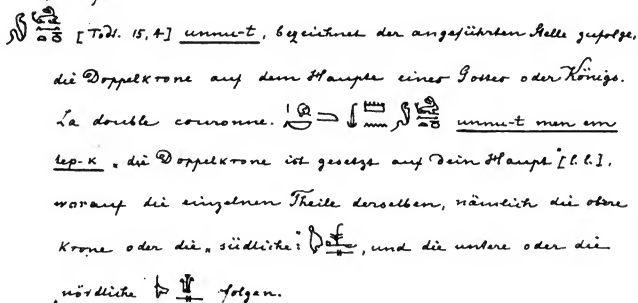 [Todt. 15,4] unnu-t, bezeichnet der angeführten Stelle zufolge,
die Doppelkrone auf dem Haupte eines Gottes oder Königs.
La double couronne. unnu-t men em
tep-k „die Doppelkrone ist gesetzt auf Dein Haupt" [l. l.],
worauf die einzelnen Theile derselben, nämlich die obere
Krone oder die „südliche": , und die untere oder die
„nördliche folgen.